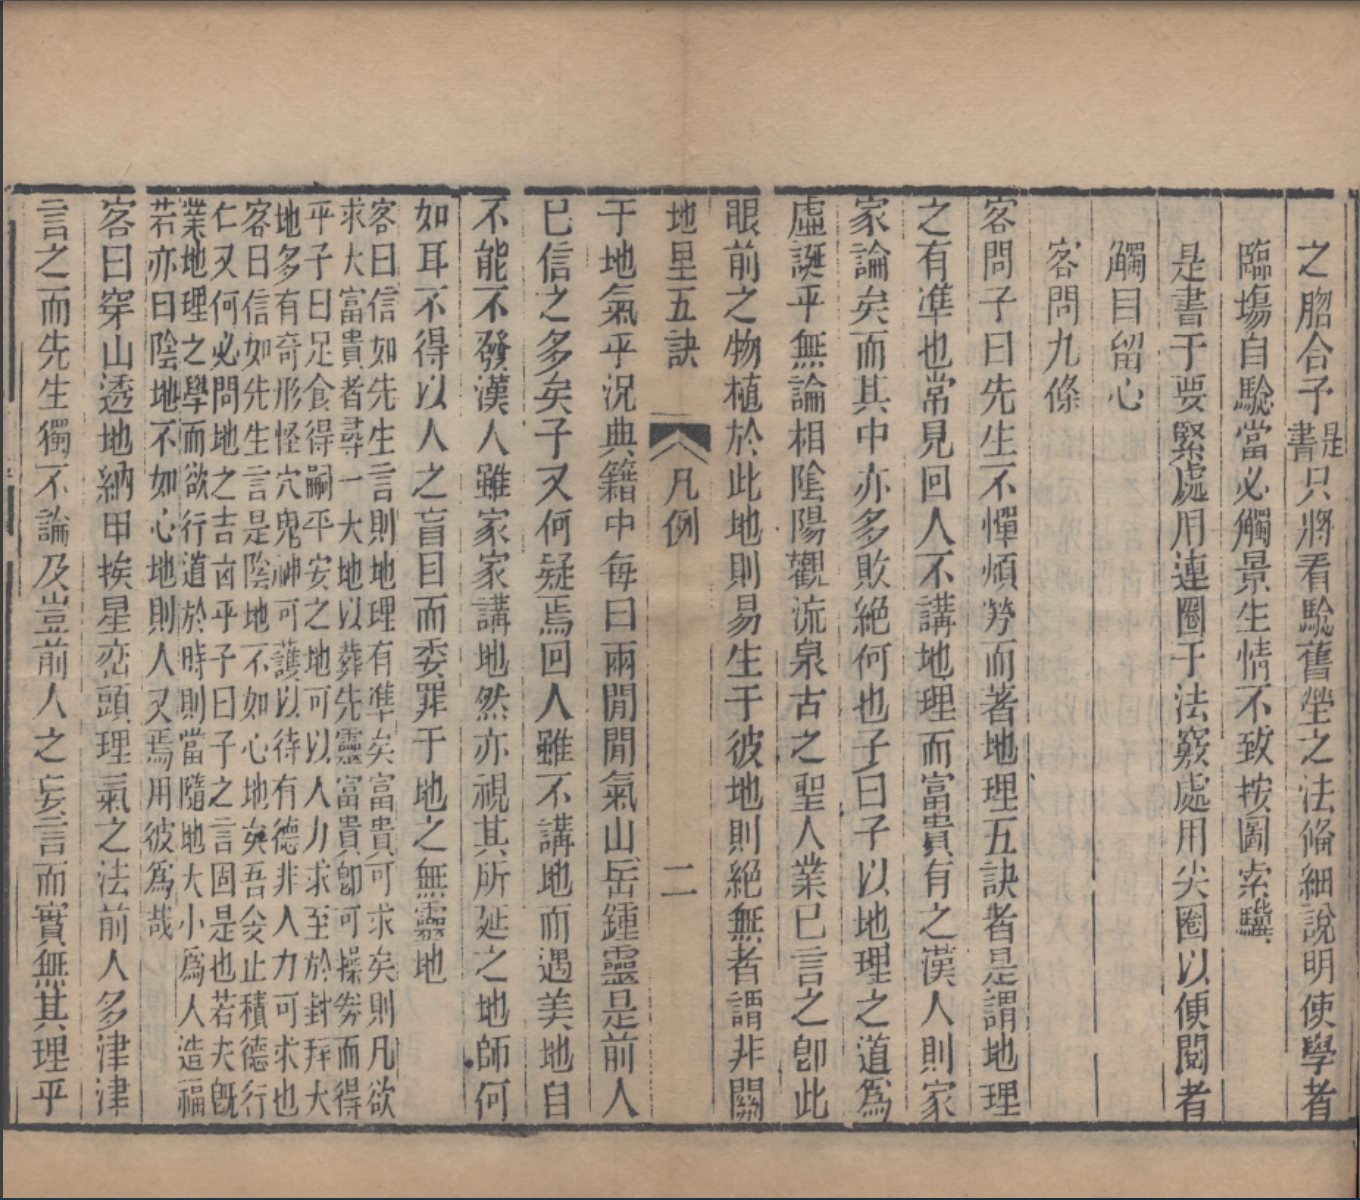 之脗合予是書只將看騐舊塋之法俻細說明使學者
臨塲自騐當必觸景生情不致按圖索驥
是書于要緊處用連圈于法竅處用尖圈以便閱者
觸目留心
客問九條
客問予曰先生不憚煩勞而著地理五訣者是謂地理
之有凖也常見回人不講地理而富貴有之漢人則家
家論矣而其中亦多敗絕何也予曰子以地理之道爲
虛誕乎無論相陰陽觀流泉古之聖人業已言之卽此
眼前之物植於此地則易生于彼地則絕無者謂非關
地里五訣 凡例 二
于地氣乎况典籍中每曰兩間間氣山岳鍾靈是前人
已信之多矣子又何疑焉回人雖不講地而遇美地自
不能不發漢人雖家家講地然亦視其所延之地師何
如耳不得以人之盲目而委罪于地之無靈也
客曰信如先生言則地理有凖矣富貴可求矣則凡欲
求大富貴者尋一大地以葬先靈富貴卽可操劵而得
乎予曰足食得嗣平安之地可以人力求至於封拜大
地多有奇形怪穴鬼神可護以待有德非人力可求也
客曰信如先生言是陰地不如心地矣吾侭止積德行
仁又何必問地之吉凶乎予曰子之言固是也若夫旣
業地理之學而欲行道於時則當隨地大小爲人造福
若亦曰陰地不如心地則人又焉用彼爲哉
客曰穿山透地納甲挨星巒頭理氣之法前人多津津
言之而先生獨不論及豈前人之妄言而實無其理乎